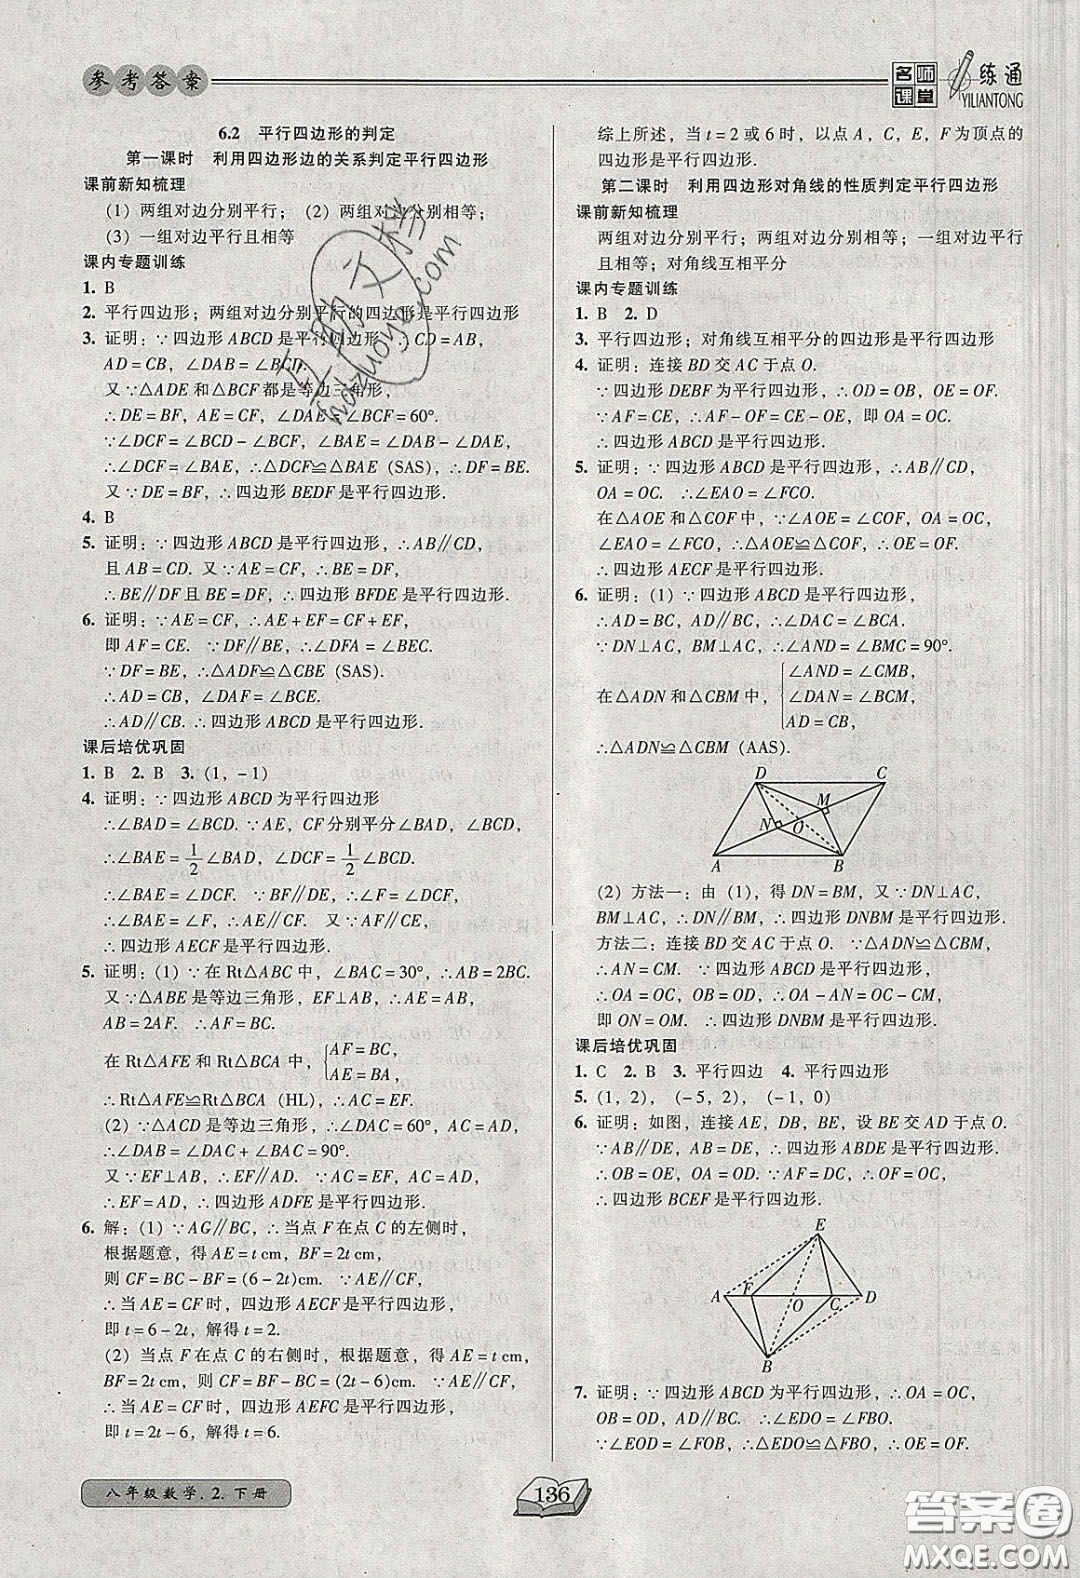 参考答案
名师课堂
一练通
YILIANTONG
6.2 平行四边形的判定
第一课时 利用四边形边的关系判定平行四边形
课前新知梳理
(1) 两组对边分别平行; (2) 两组对边分别相等;
(3) 一组对边平行且相等
课内专题训练
1. B
2. 平行四边形; 两组对边分别平行的四边形是平行四边形
3. 证明: ∵四边形 ABCD 是平行四边形, ∴CD=AB,
AD=CB, ∠DAB=∠BCD.
又∵△ADE 和△BCF 都是等边三角形,
∴DE=BF, AE=CF, ∠DAE=∠BCF=60°.
∵∠DCF=∠BCD-∠BCF, ∠BAE=∠DAB-∠DAE,
∴∠DCF=∠BAE, ∴△DCF≌△BAE (SAS), ∴DF=BE.
又∵DE=BF, ∴四边形 BEDF 是平行四边形.
4. B
5. 证明: ∵四边形 ABCD 是平行四边形, ∴AB∥CD,
且 AB=CD. 又∵AE=CF, ∴BE=DF,
∴BE∥DF 且 BE=DF, ∴四边形 BFDE 是平行四边形.
6. 证明: ∵AE=CF, ∴AE+EF=CF+EF,
即 AF=CE. ∵DF∥BE, ∴∠DFA=∠BEC.
∵DF=BE, ∴△ADF≌△CBE (SAS),
∴AD=CB, ∠DAF=∠BCE.
∴AD∥CB. ∴四边形 ABCD 是平行四边形.
课后培优巩固
1. B 2. B 3. (1, -1)
4. 证明: ∵四边形 ABCD 为平行四边形
∴∠BAD=∠BCD. ∵AE, CF 分别平分∠BAD, ∠BCD,
∴∠BAE=1/2∠BAD, ∠DCF=1/2∠BCD.
∴∠BAE=∠DCF. ∵BF∥DE, ∴∠DCF=∠F.
∴∠BAE=∠F, ∴AE∥CF. 又∵AF∥CE,
∴四边形 AECF 是平行四边形.
5. 证明: (1) ∵在 Rt△ABC 中, ∠BAC=30°, ∴AB=2BC.
又∵△ABE 是等边三角形, EF⊥AB, ∴AE=AB,
AB=2AF. ∴AF=BC.
在 Rt△AFE 和 Rt△BCA 中, {AF=BC,
AE=BA,
∴Rt△AFE≌Rt△BCA (HL), ∴AC=EF.
(2) ∵△ACD 是等边三角形, ∴∠DAC=60°, AC=AD,
∴∠DAB=∠DAC+∠BAC=90°.
又∵EF⊥AB, ∴EF∥AD. ∵AC=EF, AC=AD,
∴EF=AD, ∴四边形 ADFE 是平行四边形.
6. 解: (1) ∵AG∥BC, ∴当点 F 在点 C 的左侧时,
根据题意, 得 AE=t cm, BF=2t cm,
则 CF=BC-BF=(6-2t)cm. ∵AE∥CF,
∴当 AE=CF 时, 四边形 AECF 是平行四边形,
即 t=6-2t, 解得 t=2.
(2) 当点 F 在点 C 的右侧时, 根据题意, 得 AE=t cm,
BF=2t cm, 则 CF=BF-BC=(2t-6)cm. ∵AE∥CF,
∴当 AE=CF 时, 四边形 AEFC 是平行四边形,
即 t=2t-6, 解得 t=6.
综上所述, 当 t=2 或 6 时, 以点 A, C, E, F 为顶点的
四边形是平行四边形.
第二课时 利用四边形对角线的性质判定平行四边形
课前新知梳理
两组对边分别平行; 两组对边分别相等; 一组对边平行
且相等; 对角线互相平分
课内专题训练
1. B 2. D
3. 平行四边形; 对角线互相平分的四边形是平行四边形
4. 证明: 连接 BD 交 AC 于点 O.
∵四边形 DEBF 为平行四边形, ∴OD=OB, OE=OF.
∵AF=CE, ∴AF-OF=CE-OE, 即 OA=OC.
∴四边形 ABCD 是平行四边形.
5. 证明: ∵四边形 ABCD 是平行四边形, ∴AB∥CD,
OA=OC. ∴∠EAO=∠FCO.
在△AOE 和△COF 中, ∵∠AOE=∠COF, OA=OC,
∠EAO=∠FCO, ∴△AOE≌△COF, ∴OE=OF,
∴四边形 AECF 是平行四边形.
6. 证明: (1) ∵四边形 ABCD 是平行四边形,
∴AD=BC, AD∥BC, ∴∠DAC=∠BCA.
∵DN⊥AC, BM⊥AC, ∴∠AND=∠BMC=90°.
在△ADN 和△CBM 中, {∠AND=∠CMB,
∠DAN=∠BCM,
AD=CB,
∴△ADN≌△CBM (AAS).
D C
M
N O
A B
(2) 方法一: 由 (1), 得 DN=BM, 又∵DN⊥AC,
BM⊥AC, ∴DN∥BM, ∴四边形 DNBM 是平行四边形.
方法二: 连接 BD 交 AC 于点 O, ∵△ADN≌△CBM,
∴AN=CM. ∵四边形 ABCD 是平行四边形,
∴OA=OC, OB=OD, ∴OA-AN=OC-CM,
即 ON=OM. ∴四边形 DNBM 是平行四边形.
课后培优巩固
1. C 2. B 3. 平行四边 4. 平行四边形
5. (1, 2), (-5, 2), (-1, 0)
6. 证明: 如图, 连接 AE, DB, BE, 设 BE 交 AD 于点 O.
∵AB∥DE, AB=DE, ∴四边形 ABDE 是平行四边形.
∴OB=OE, OA=OD. ∵AF=DC, ∴OF=OC.
∴四边形 BCEF 是平行四边形.
E
A F O C D
B
7. 证明: ∵四边形 ABCD 为平行四边形, ∴OA=OC,
OB=OD, AD∥BC. ∴∠EDO=∠FBO.
∵∠EOD=∠FOB, ∴△EDO≌△FBO, ∴OE=OF.
八年级数学. 2. 下册
136
hdzuoye.com
答案圈
MXQE.COM